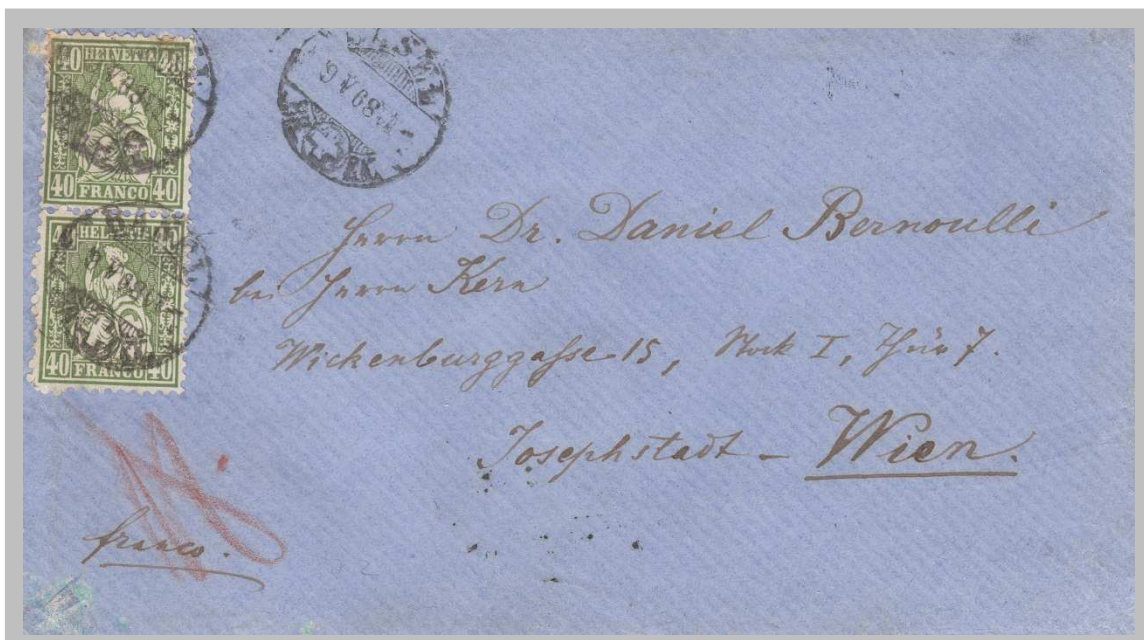 40 HELVETIA 40
40 FRANCO 40
40 HELVETIA
40 FRANCO 40
BASEL
9 V 68
Herrn Dr. Daniel Bernoulli
bei Herrn Kern
Wickenburggasse 15, Stock I, Thür 7.
Josephstadt - Wien.
franco.